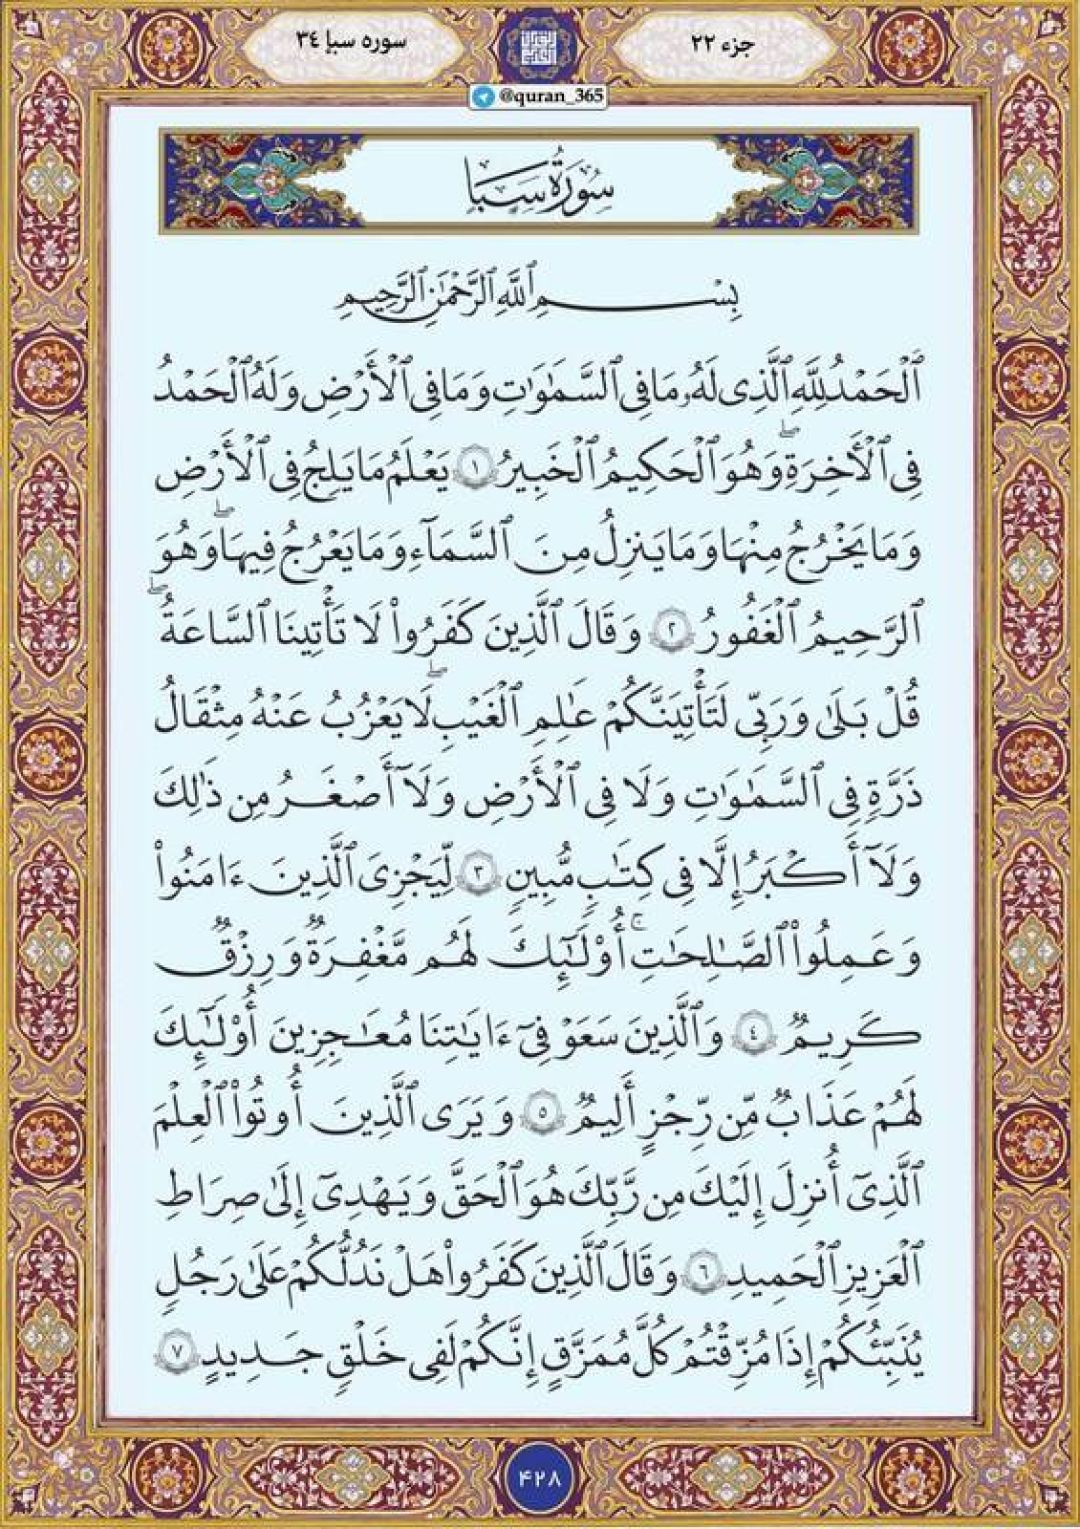 جزء ۲۲
سوره سبإ ۳۴
@quran_365
سُورَةُ سَبَإ
بِسْمِ ٱللَّهِ ٱلرَّحْمَٰنِ ٱلرَّحِيمِ
ٱلْحَمْدُ لِلَّهِ ٱلَّذِى لَهُۥ مَا فِى ٱلسَّمَٰوَٰتِ وَمَا فِى ٱلْأَرْضِ وَلَهُ ٱلْحَمْدُ
فِى ٱلْأَخِرَةِۖ وَهُوَ ٱلْحَكِيمُ ٱلْخَبِيرُ ١ يَعْلَمُ مَا يَلِجُ فِى ٱلْأَرْضِ
وَمَا يَخْرُجُ مِنْهَا وَمَا يَنزِلُ مِنَ ٱلسَّمَآءِ وَمَا يَعْرُجُ فِيهَاۖ وَهُوَ
ٱلرَّحِيمُ ٱلْغَفُورُ ٢ وَقَالَ ٱلَّذِينَ كَفَرُوا۟ لَا تَأْتِينَا ٱلسَّاعَةُۖ
قُلْ بَلَىٰ وَرَبِّى لَتَأْتِيَنَّكُمْ عَٰلِمِ ٱلْغَيْبِۖ لَا يَعْزُبُ عَنْهُ مِثْقَالُ
ذَرَّةٍ فِى ٱلسَّمَٰوَٰتِ وَلَا فِى ٱلْأَرْضِ وَلَآ أَصْغَرُ مِن ذَٰلِكَ
وَلَآ أَكْبَرُ إِلَّا فِى كِتَٰبٍ مُّبِينٍ ٣ لِّيَجْزِىَ ٱلَّذِينَ ءَامَنُوا۟
وَعَمِلُوا۟ ٱلصَّٰلِحَٰتِۚ أُو۟لَٰٓئِكَ لَهُم مَّغْفِرَةٌ وَرِزْقٌ
كَرِيمٌ ٤ وَٱلَّذِينَ سَعَوْ فِىٓ ءَايَٰتِنَا مُعَٰجِزِينَ أُو۟لَٰٓئِكَ
لَهُمْ عَذَابٌ مِّن رِّجْزٍ أَلِيمٌ ٥ وَيَرَى ٱلَّذِينَ أُوتُوا۟ ٱلْعِلْمَ
ٱلَّذِىٓ أُنزِلَ إِلَيْكَ مِن رَّبِّكَ هُوَ ٱلْحَقَّ وَيَهْدِىٓ إِلَىٰ صِرَاطِ
ٱلْعَزِيزِ ٱلْحَمِيدِ ٦ وَقَالَ ٱلَّذِينَ كَفَرُوا۟ هَلْ نَدُلُّكُمْ عَلَىٰ رَجُلٍ
يُنَبِّئُكُمْ إِذَا مُزِّقْتُمْ كُلَّ مُمَزَّقٍ إِنَّكُمْ لَفِى خَلْقٍ جَدِيدٍ ٧
۴۲۸